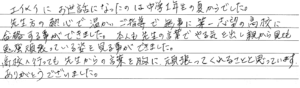 エイメイにお世話になったのは中学3年生の夏からでした。
先生方の熱心で温かいご指導で無事に第一志望の高校に
合格する事ができました。本人も先生の言葉でやる気を出し親から見ても
必死頑張っている姿を見る事ができました。
高校へ行っても先生からの言葉を胸に頑張ってくれることと思っています。
ありがとうございました。